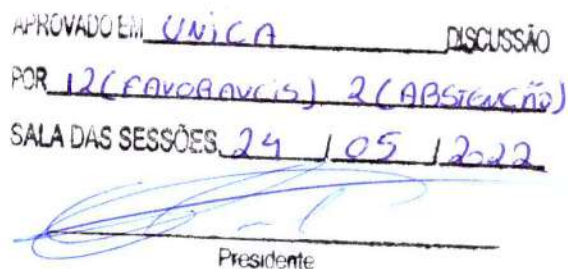 APROVADO EM UNICA DISCUSSÃO
POR 12 (FAVORAVEIS) 2 (ABSTENÇÃO)
SALA DAS SESSÕES, 24 / 05 / 2022
Presidente